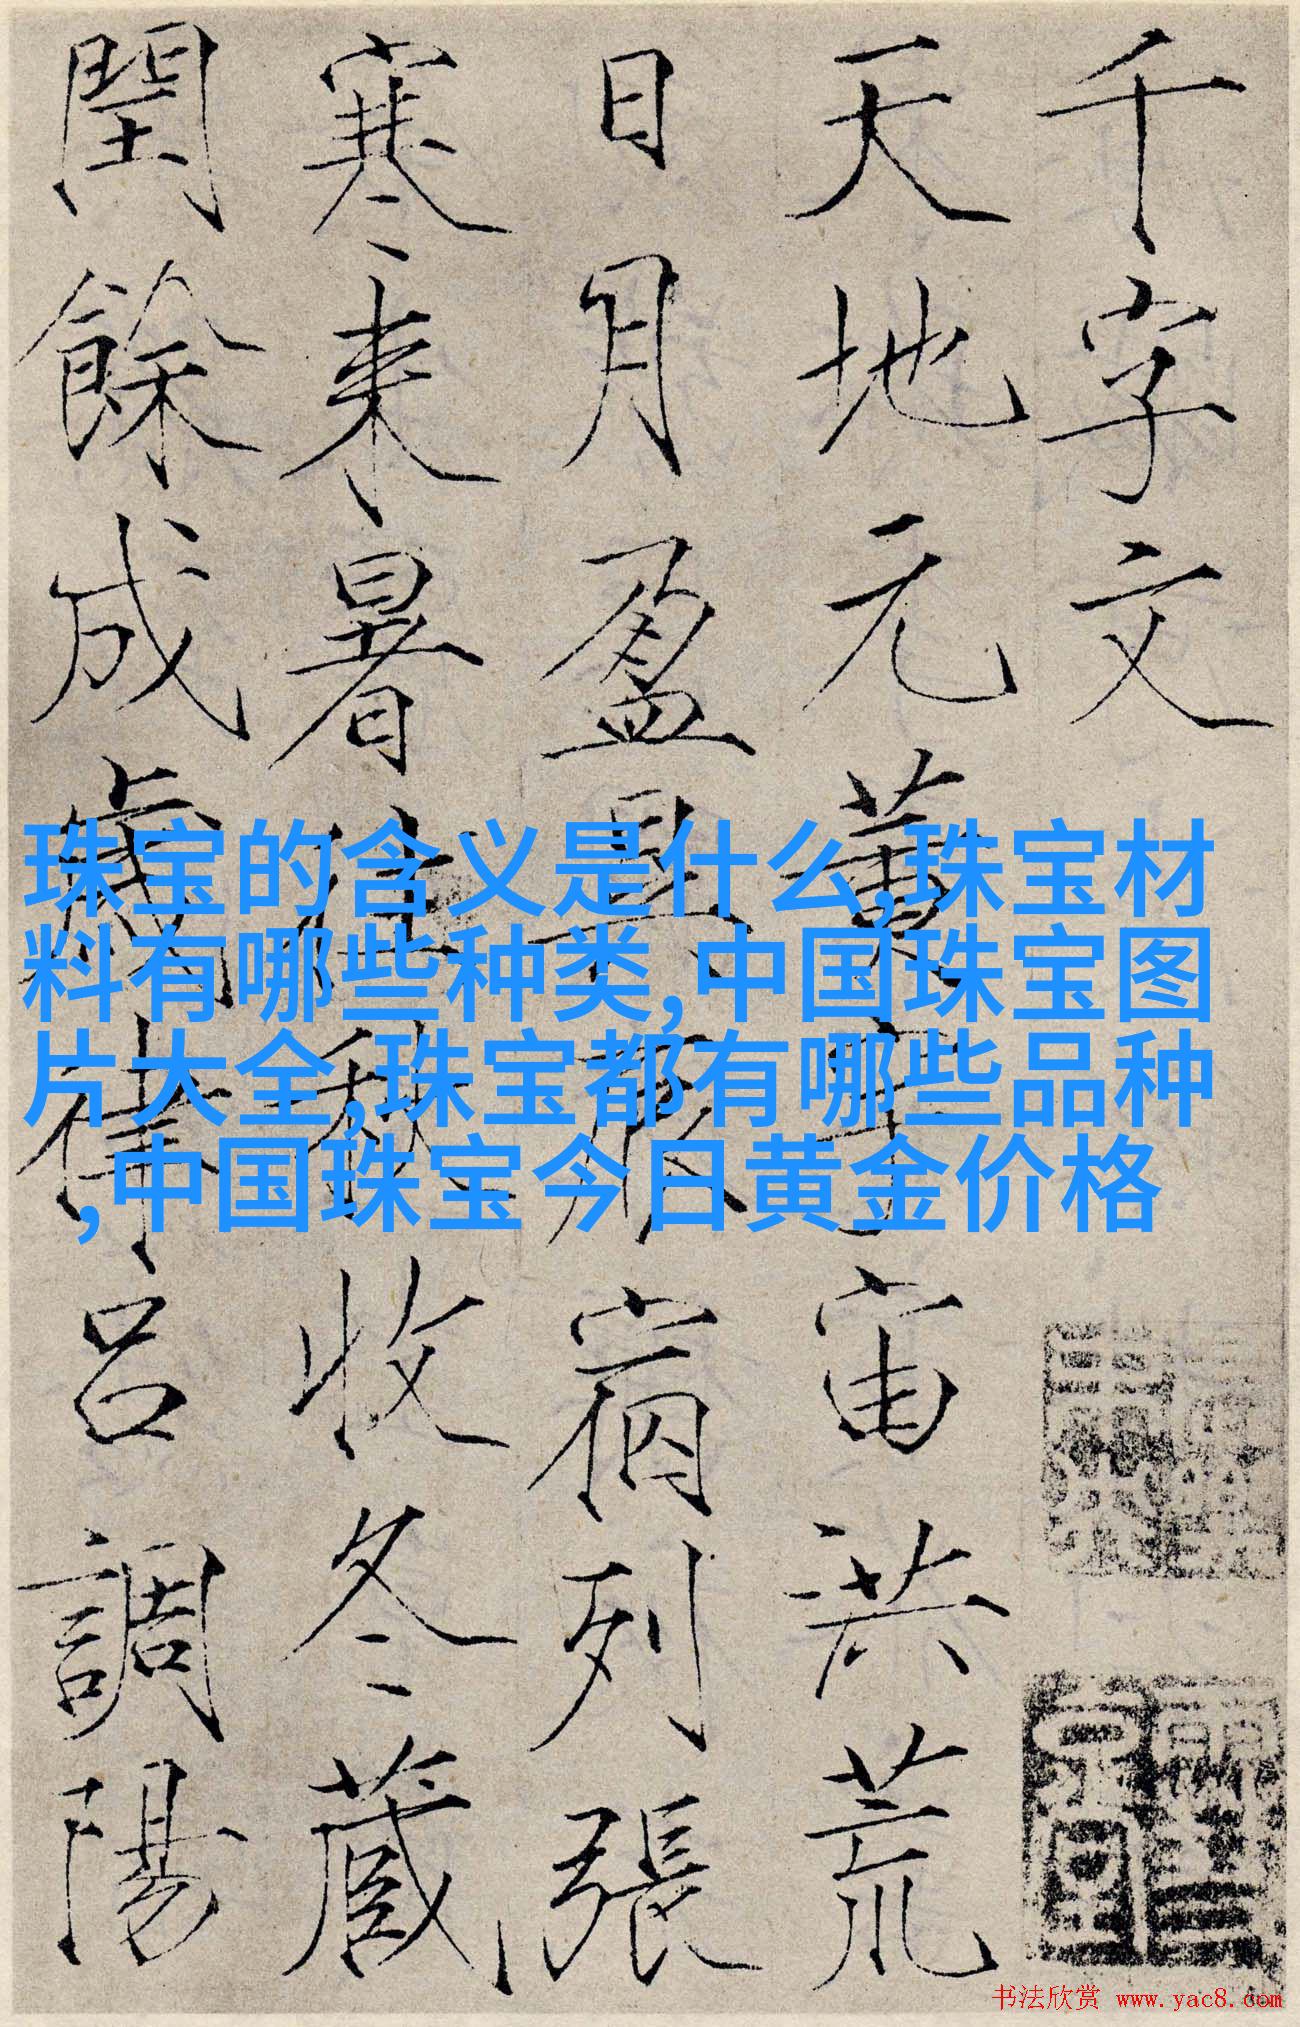 千字文
天地元黄宇宙洪荒
日月盈昃辰宿列張
寒来暑往秋收冬蔵
閏餘成歳律吕調陽
珠宝的含义是什么,珠宝材
料有哪些种类,中国珠宝图
片大全,珠宝都有哪些品种
,中国珠宝今日黄金价格
书法欣赏 www.yac8.com